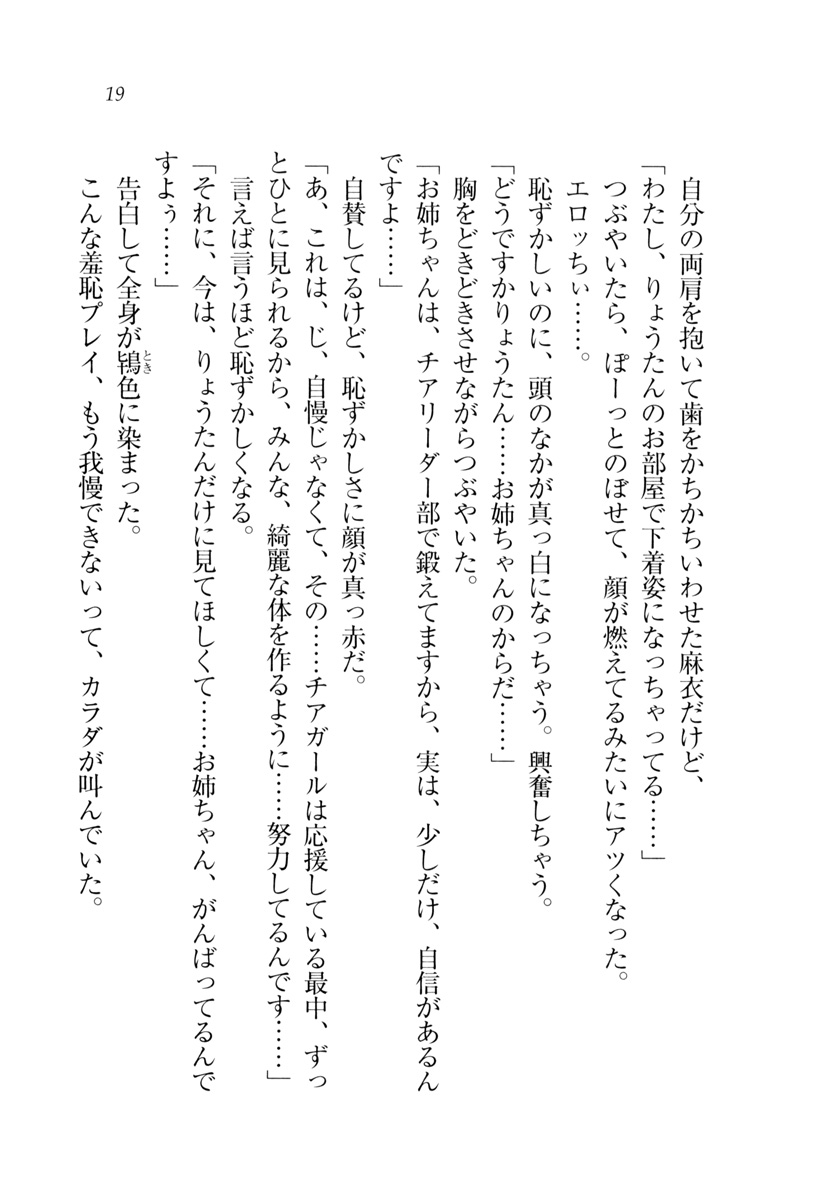 19
自分の両肩を抱いて歯をかちかちいわせた麻衣だけど、
「わたし、りょうたんのお部屋で下着姿になっちゃってる……」
つぶやいたら、ぽーっとのぼせて、顔が燃えてるみたいにアツくなった。
エロッちぃ……。
恥ずかしいのに、頭のなかが真っ白になっちゃう。興奮しちゃう。
「どうですかりょうたん……お姉ちゃんのからだ……」
胸をどきどきさせながらつぶやいた。
「お姉ちゃんは、チアリーダー部で鍛えてますから、実は、少しだけ、自信があるん
ですよ……」
自賛してるけど、恥ずかしさに顔が真っ赤だ。
「あ、これは、じ、自慢じゃなくて、その……チアガールは応援している最中、ずっ
とひとに見られるから、みんな、綺麗な体を作るように……努力してるんです……」
言えば言うほど恥ずかしくなる。
「それに、今は、りょうたんだけに見てほしくて……お姉ちゃん、がんばってるんで
すよぅ……」
告白して全身が鴇色に染まった。
とき
こんな羞恥プレイ、もう我慢できないって、カラダが叫んでいた。